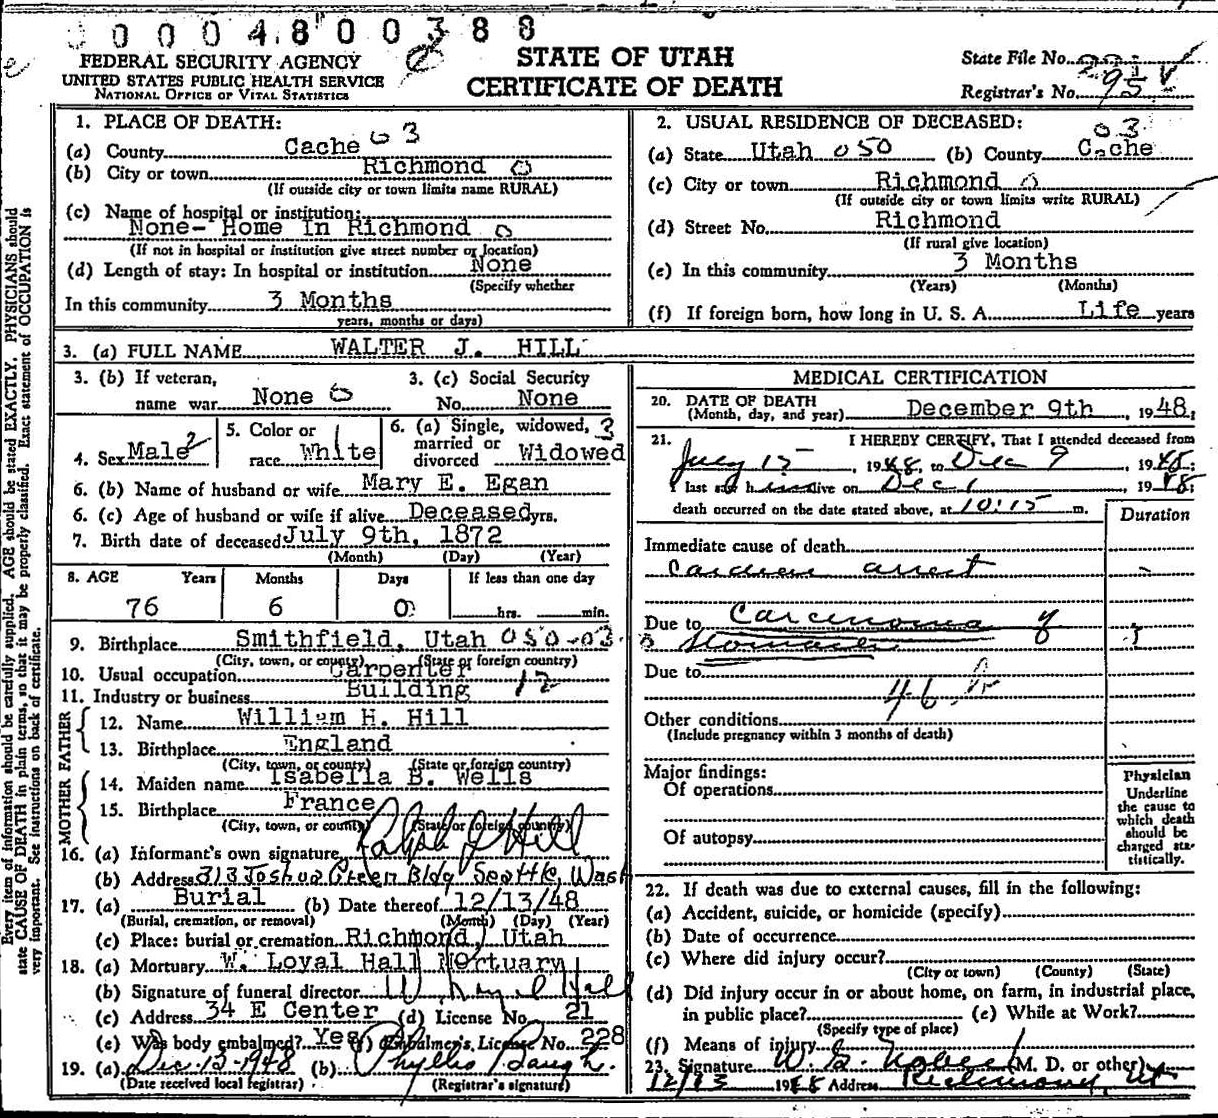 0 0 0 0 4 8 0 0 3 8 8
FEDERAL SECURITY AGENCY
UNITED STATES PUBLIC HEALTH SERVICE
NATIONAL OFFICE OF VITAL STATISTICS
STATE OF UTAH
CERTIFICATE OF DEATH
State File No.
Registrar's No. 95
Every item of information should be carefully supplied. AGE should be stated EXACTLY. PHYSICIANS should
state CAUSE OF DEATH in plain terms, so that it may be properly classified. Exact statement of OCCUPATION is
very important. See instructions on back of certificate.
1. PLACE OF DEATH:
(a) County Cache 03
(b) City or town Richmond 0
(If outside city or town limits name RURAL)
(c) Name of hospital or institution:
None- Home In Richmond 0
(If not in hospital or institution give street number or location)
(d) Length of stay: In hospital or institution None
(Specify whether
In this community 3 Months
years, months or days)
2. USUAL RESIDENCE OF DECEASED:
03
(a) State Utah 050 (b) County Cache
(c) City or town Richmond 0
(If outside city or town limits write RURAL)
(d) Street No. Richmond
(If rural give location)
(e) In this community 3 Months
(Years) (Months)
(f) If foreign born, how long in U. S. A. Life years
3. (a) FULL NAME WALTER J. HILL
3. (b) If veteran,
name war None 0
3. (c) Social Security
No. None
4. Sex Male 2
5. Color or
race White 1
6. (a) Single, widowed, 3
married or
divorced Widowed
6. (b) Name of husband or wife Mary E. Egan
6. (c) Age of husband or wife if alive Deceased yrs.
7. Birth date of deceased July 9th, 1872
(Month) (Day) (Year)
8. AGE Years Months Days If less than one day
76 6 0 hrs. min.
9. Birthplace Smithfield, Utah 050-03
(City, town, or county) (State or foreign country)
10. Usual occupation Carpenter
11. Industry or business Building 12
FATHER
12. Name William H. Hill
13. Birthplace England
(City, town, or county) (State or foreign country)
MOTHER
14. Maiden name Isabella B. Wells
15. Birthplace France
(City, town, or county) (State or foreign country)
16. (a) Informant's own signature Ralph J Hill
(b) Address 313 Joshua Green Bldg Seattle, Wash
17. (a) Burial (b) Date thereof 12/13/48
(Burial, cremation, or removal) (Month) (Day) (Year)
(c) Place: burial or cremation Richmond, Utah
18. (a) Mortuary W. Loyal Hall Mortuary
(b) Signature of funeral director W. Loyal Hall
(c) Address 34 E Center (d) License No. 21
(e) Was body embalmed? Yes (f) Embalmer's License No. 228
19. (a) Dec. 13-1948 (b) Phyllis Baugh.
(Date received local registrar) (Registrar's signature)
MEDICAL CERTIFICATION
20. DATE OF DEATH
(Month, day, and year) December 9th, 1948;
21. I HEREBY CERTIFY, That I attended deceased from
July 15, 1948, to Dec 9 1948;
I last saw him alive on Dec 1 1948;
death occurred on the date stated above, at 10:15 m.
Duration
Immediate cause of death
Cardiac arrest
Due to Carcinoma of
Stomach
Due to
46
Other conditions
(Include pregnancy within 3 months of death)
Major findings:
Of operations
Of autopsy
Physician
Underline
the cause to
which death
should be
charged sta-
tistically.
22. If death was due to external causes, fill in the following:
(a) Accident, suicide, or homicide (specify)
(b) Date of occurrence
(c) Where did injury occur?
(City or town) (County) (State)
(d) Did injury occur in or about home, on farm, in industrial place,
in public place? (e) While at Work?
(Specify type of place)
(f) Means of injury
23. Signature W. G. (M. D. or other)
12/13 1948 Address Richmond, Ut